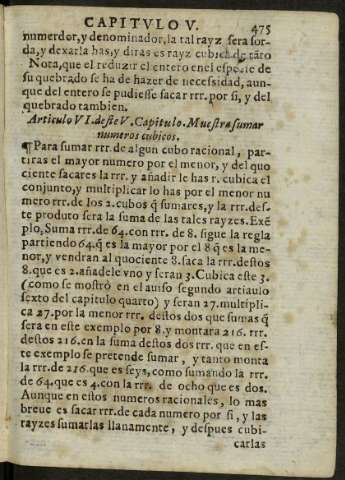 CAPITVLO V. 475
numerdor, y denominador, la tal rayz sera sor-
da, y dexarla has, y diras es rayz cubica de tãto
Nota, que el reduzir el entero en el especie de
su quebrado se ha de hazer de necessidad, aun-
que del entero se pudiesse sacar rrr. por si, y del
quebrado tambien.
Articulo VI. deste V. Capitulo. Muestra sumar
numeros cubicos.
¶Para sumar rrr. de algun cubo racional, par-
tiras el mayor numero por el menor, y del quo
ciente sacares la rrr. y añadir le has r. cubica el
conjunto, y multiplicar lo has por el menor nu
mero rrr. de los 2. cubos q̃ sumares, y la rrr. des-
te produto sera la suma de las tales rayzes. Exẽ
plo, Suma rrr. de 64. con rrr. de 8. sigue la regla
partiendo 64. q̃ es la mayor por el 8 q̃ es la me-
nor, y vendran al quociente 8. saca la rrr. destos
8. que es 2. añadele vno y serau 3. Cubica este 3.
(como se mostrò en el auiso segundo artiaulo
sexto del capitulo quarto) y seran 27. multipli-
ca 27. por la menor rrr. destos dos que sumas q̃
sera en este exemplo por 8. y montara 216. rrr.
destos 216. en la suma destos dos rrr. que en es-
te exemplo se pretende sumar, y tanto monta
la rrr. de 216. que es seys, como sumando la rrr.
de 64. que es 4. con la rrr. de ocho que es dos.
Aunque en estos numeros racionales, lo mas
breue es sacar rrr. de cada numero por si, y las
rayzes sumarlas llanamente, y despues cubi-
carlas